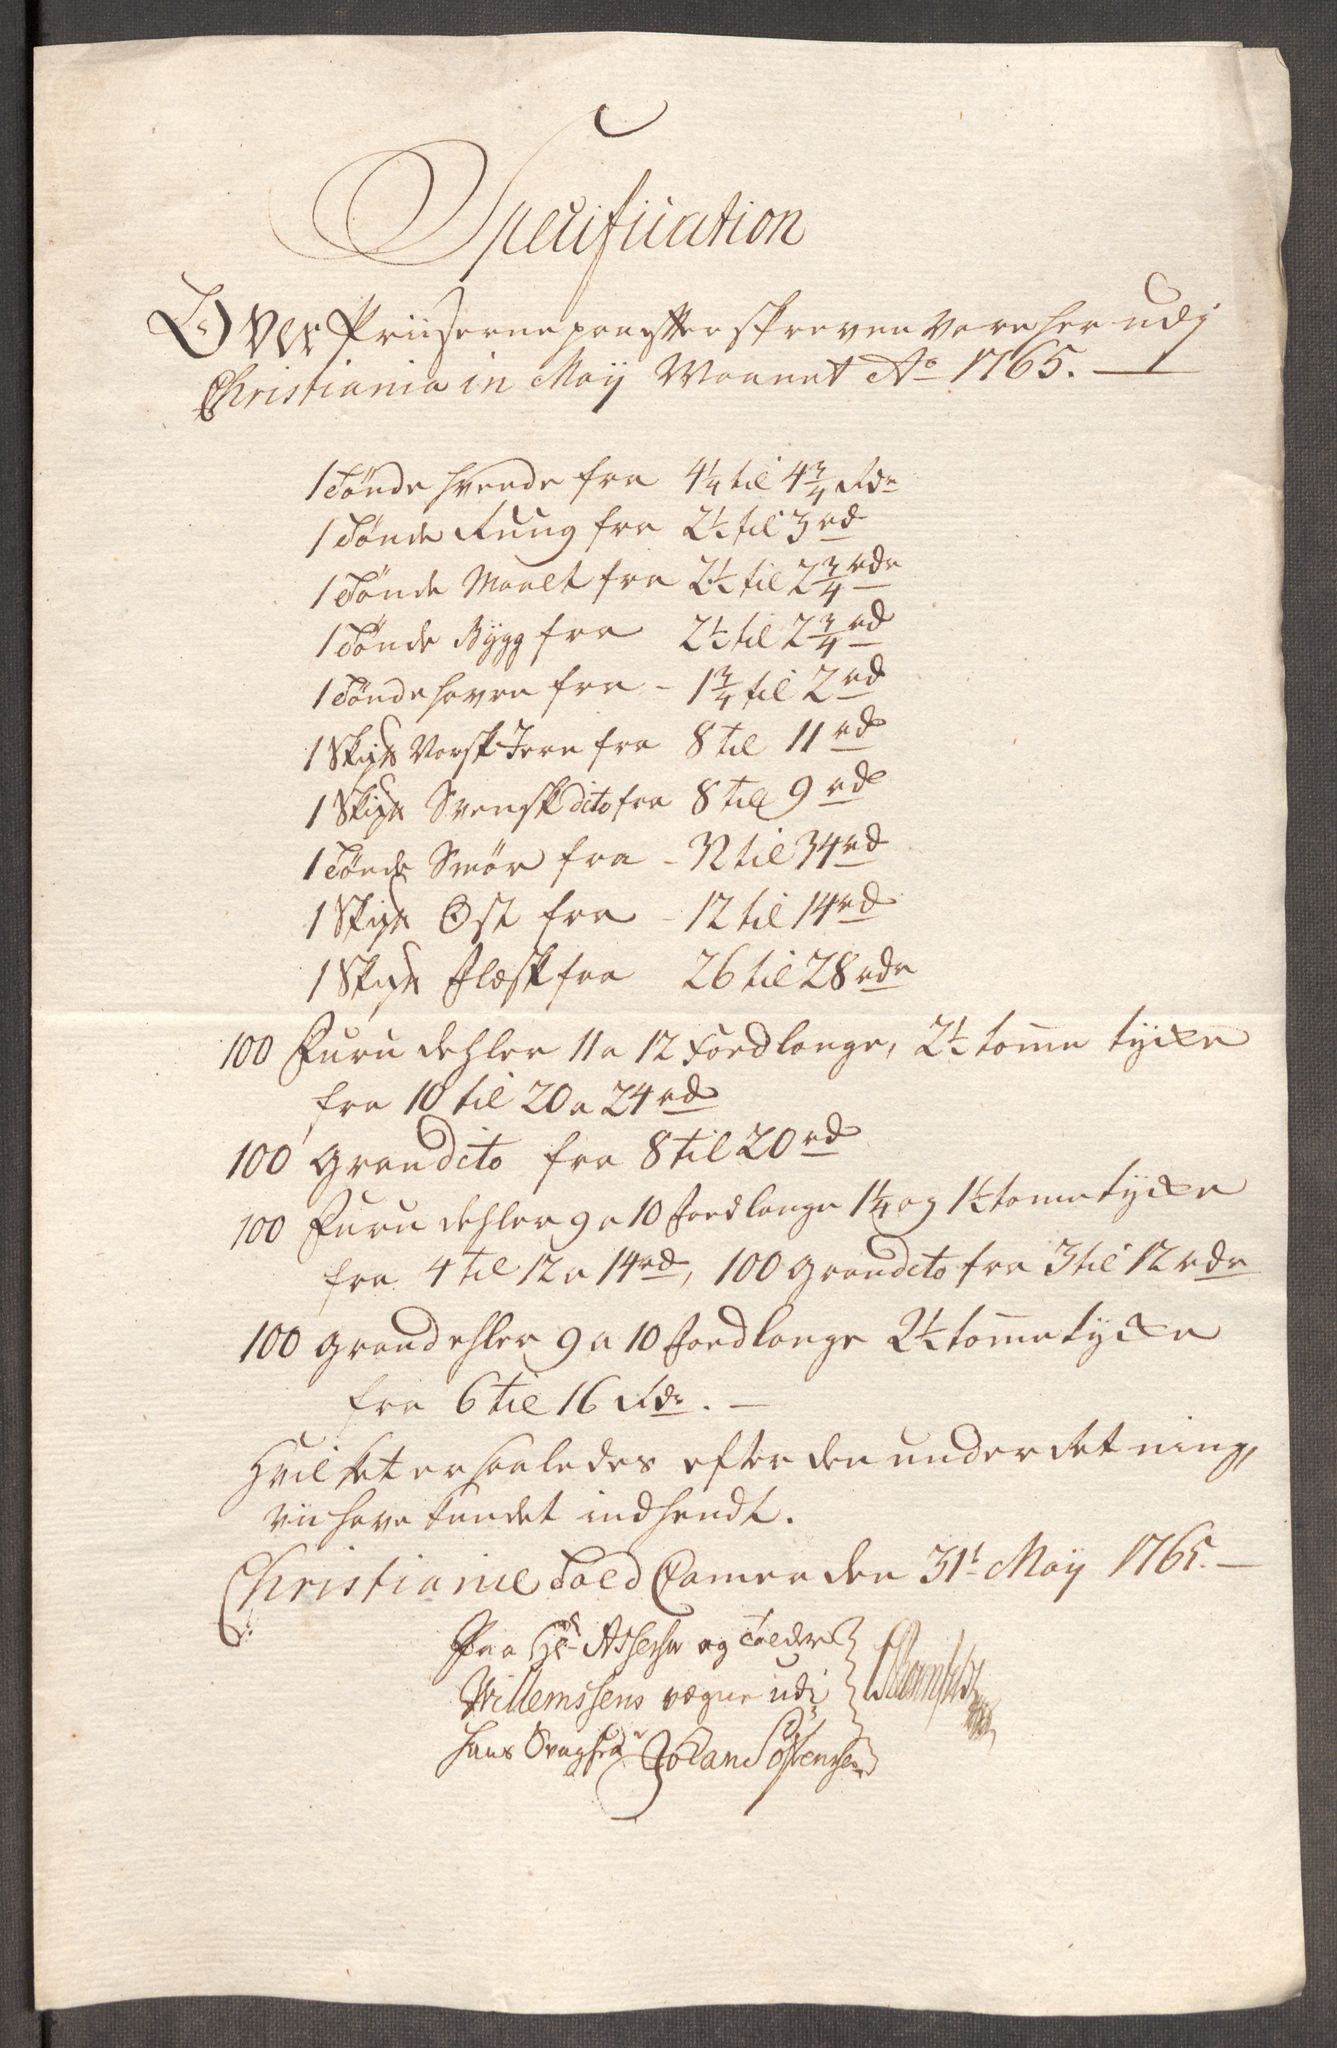 Specification
Over Priiserne paa efterskrevne Vare her udj
Christiania in Maij Maanet Ao 1765.
1 Tönde Hvede fra 4 1/4 til 4 3/4 Rdr
1 Tönde Rug fra 2 1/2 til 3 rd
1 Tönde Malt fra 2 1/2 til 2 3/4 rdr
1 Tönde Bygg fra 2 1/2 til 2 3/4 rd
1 Tönde Havre fra - 1 3/4 til 2 rd
1 Skip Norsk Jern fra 8 til 11 rd
1 Skip Svensk dito fra 8 til 9 rd
1 Tönde Smör fra - 32 til 34 rd
1 Skip Ost fra - 12 til 14 rd
1 Skip Flæsk fra 26 til 28 rdr
100 Furu dehler 11 a 12 Foed lange, 2 1/2 tomme tycke
fra 10 til 20 a 24 rd
100 Gran dito fra 8 til 20 rd
100 Furu dehler 9 a 10 foed lange 1 1/4 og 1 1/2 tome tycke
fra 4 til 12 a 14 rd, 100 Gran dito fra 3 til 12 rdr
100 Gran dehler 9 a 10 foed lange 2 1/2 tomme tycke
fra 6 til 16 Rdr.
Hvilket er saaledes efter den underretning,
vii have kundet indhendt.
Christianiæ Told Camer den 31t Maij 1765.
Paa Hr og Tolder
Willemssens vegne udi
Hans Johan Sörensen